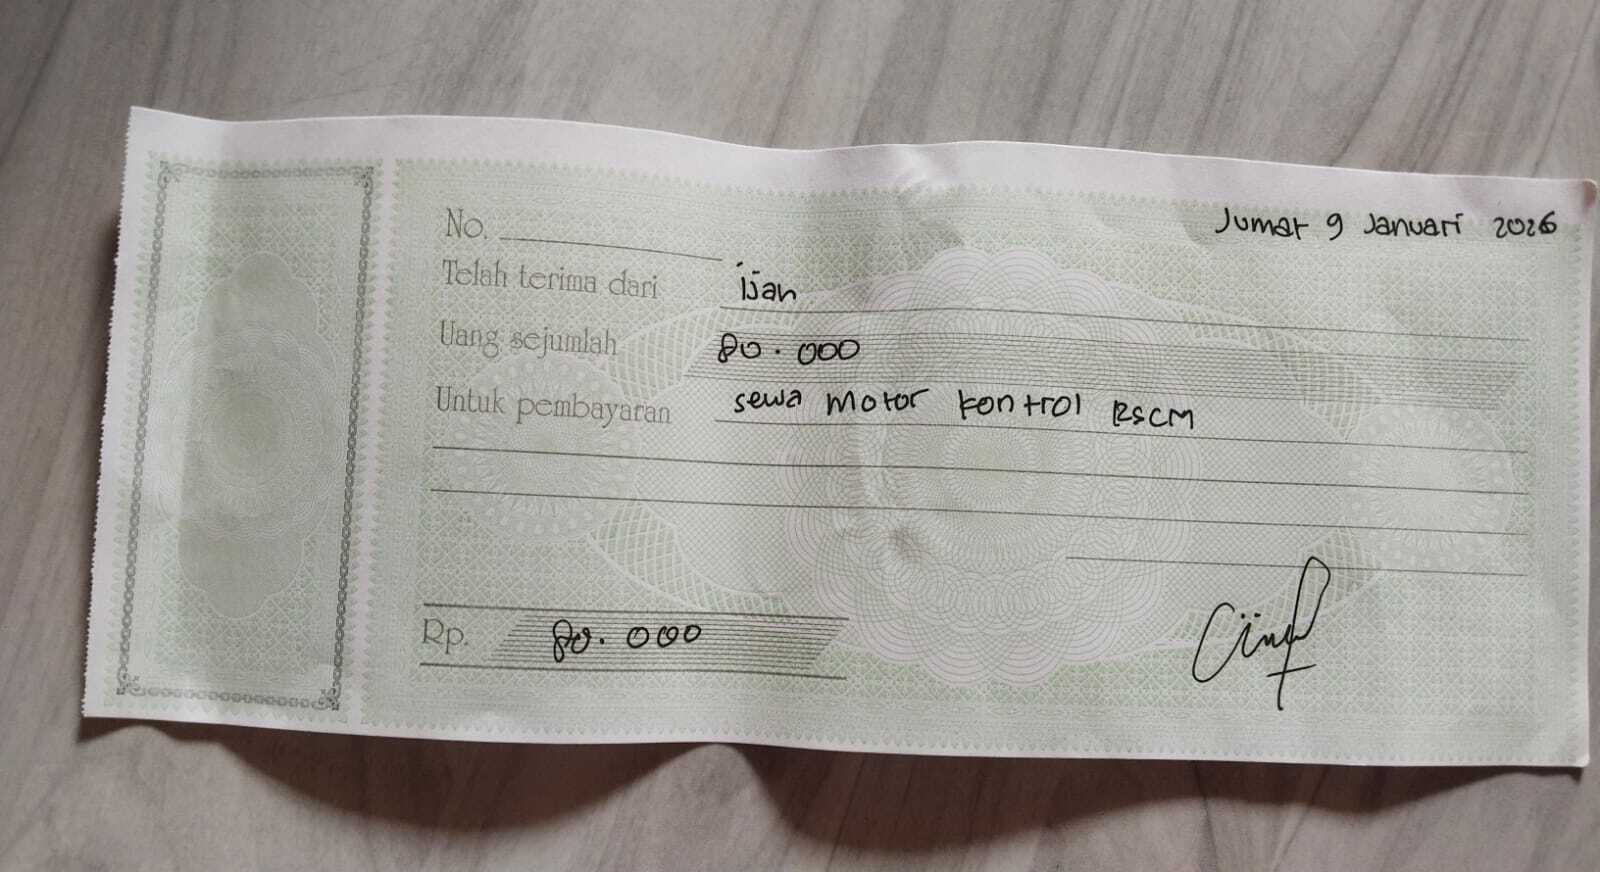 Jumat 9 Januari 2026
No.
Telah terima dari ijan
Uang sejumlah 80.000
Untuk pembayaran sewa motor kontrol RSCM
Rp. 80.000